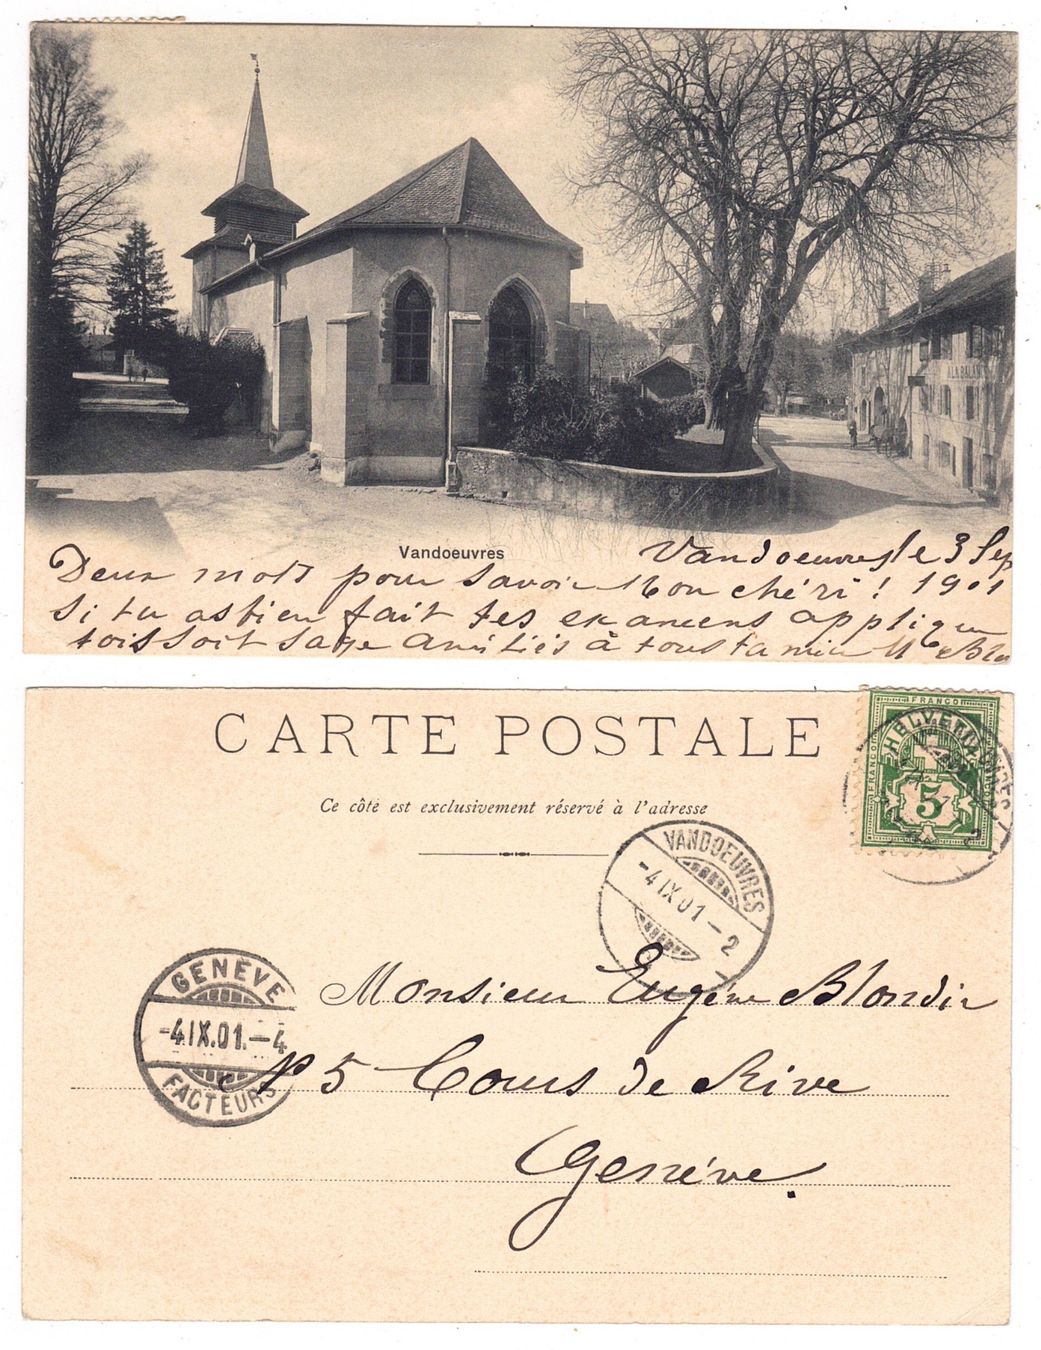 A LA BALAN
Vandoeuvres
Vandoeuvres le 3 Sep
Deux mots pour savoir Mon chéri ! 1901
si tu as bien fait tes examens applique
tois soit sage amitiés à tous ta
CARTE POSTALE
Ce côté est exclusivement réservé à l'adresse
FRANCO
HELVETIA
FRANCO
FRANCO
5
VANDOEUVRES
-4 IX 01 - 2
GENÈVE
-4.IX.01.-4
FACTEURS
Monsieur Eugéne Blondin
N° 5 Cours de Rive
Genéve.